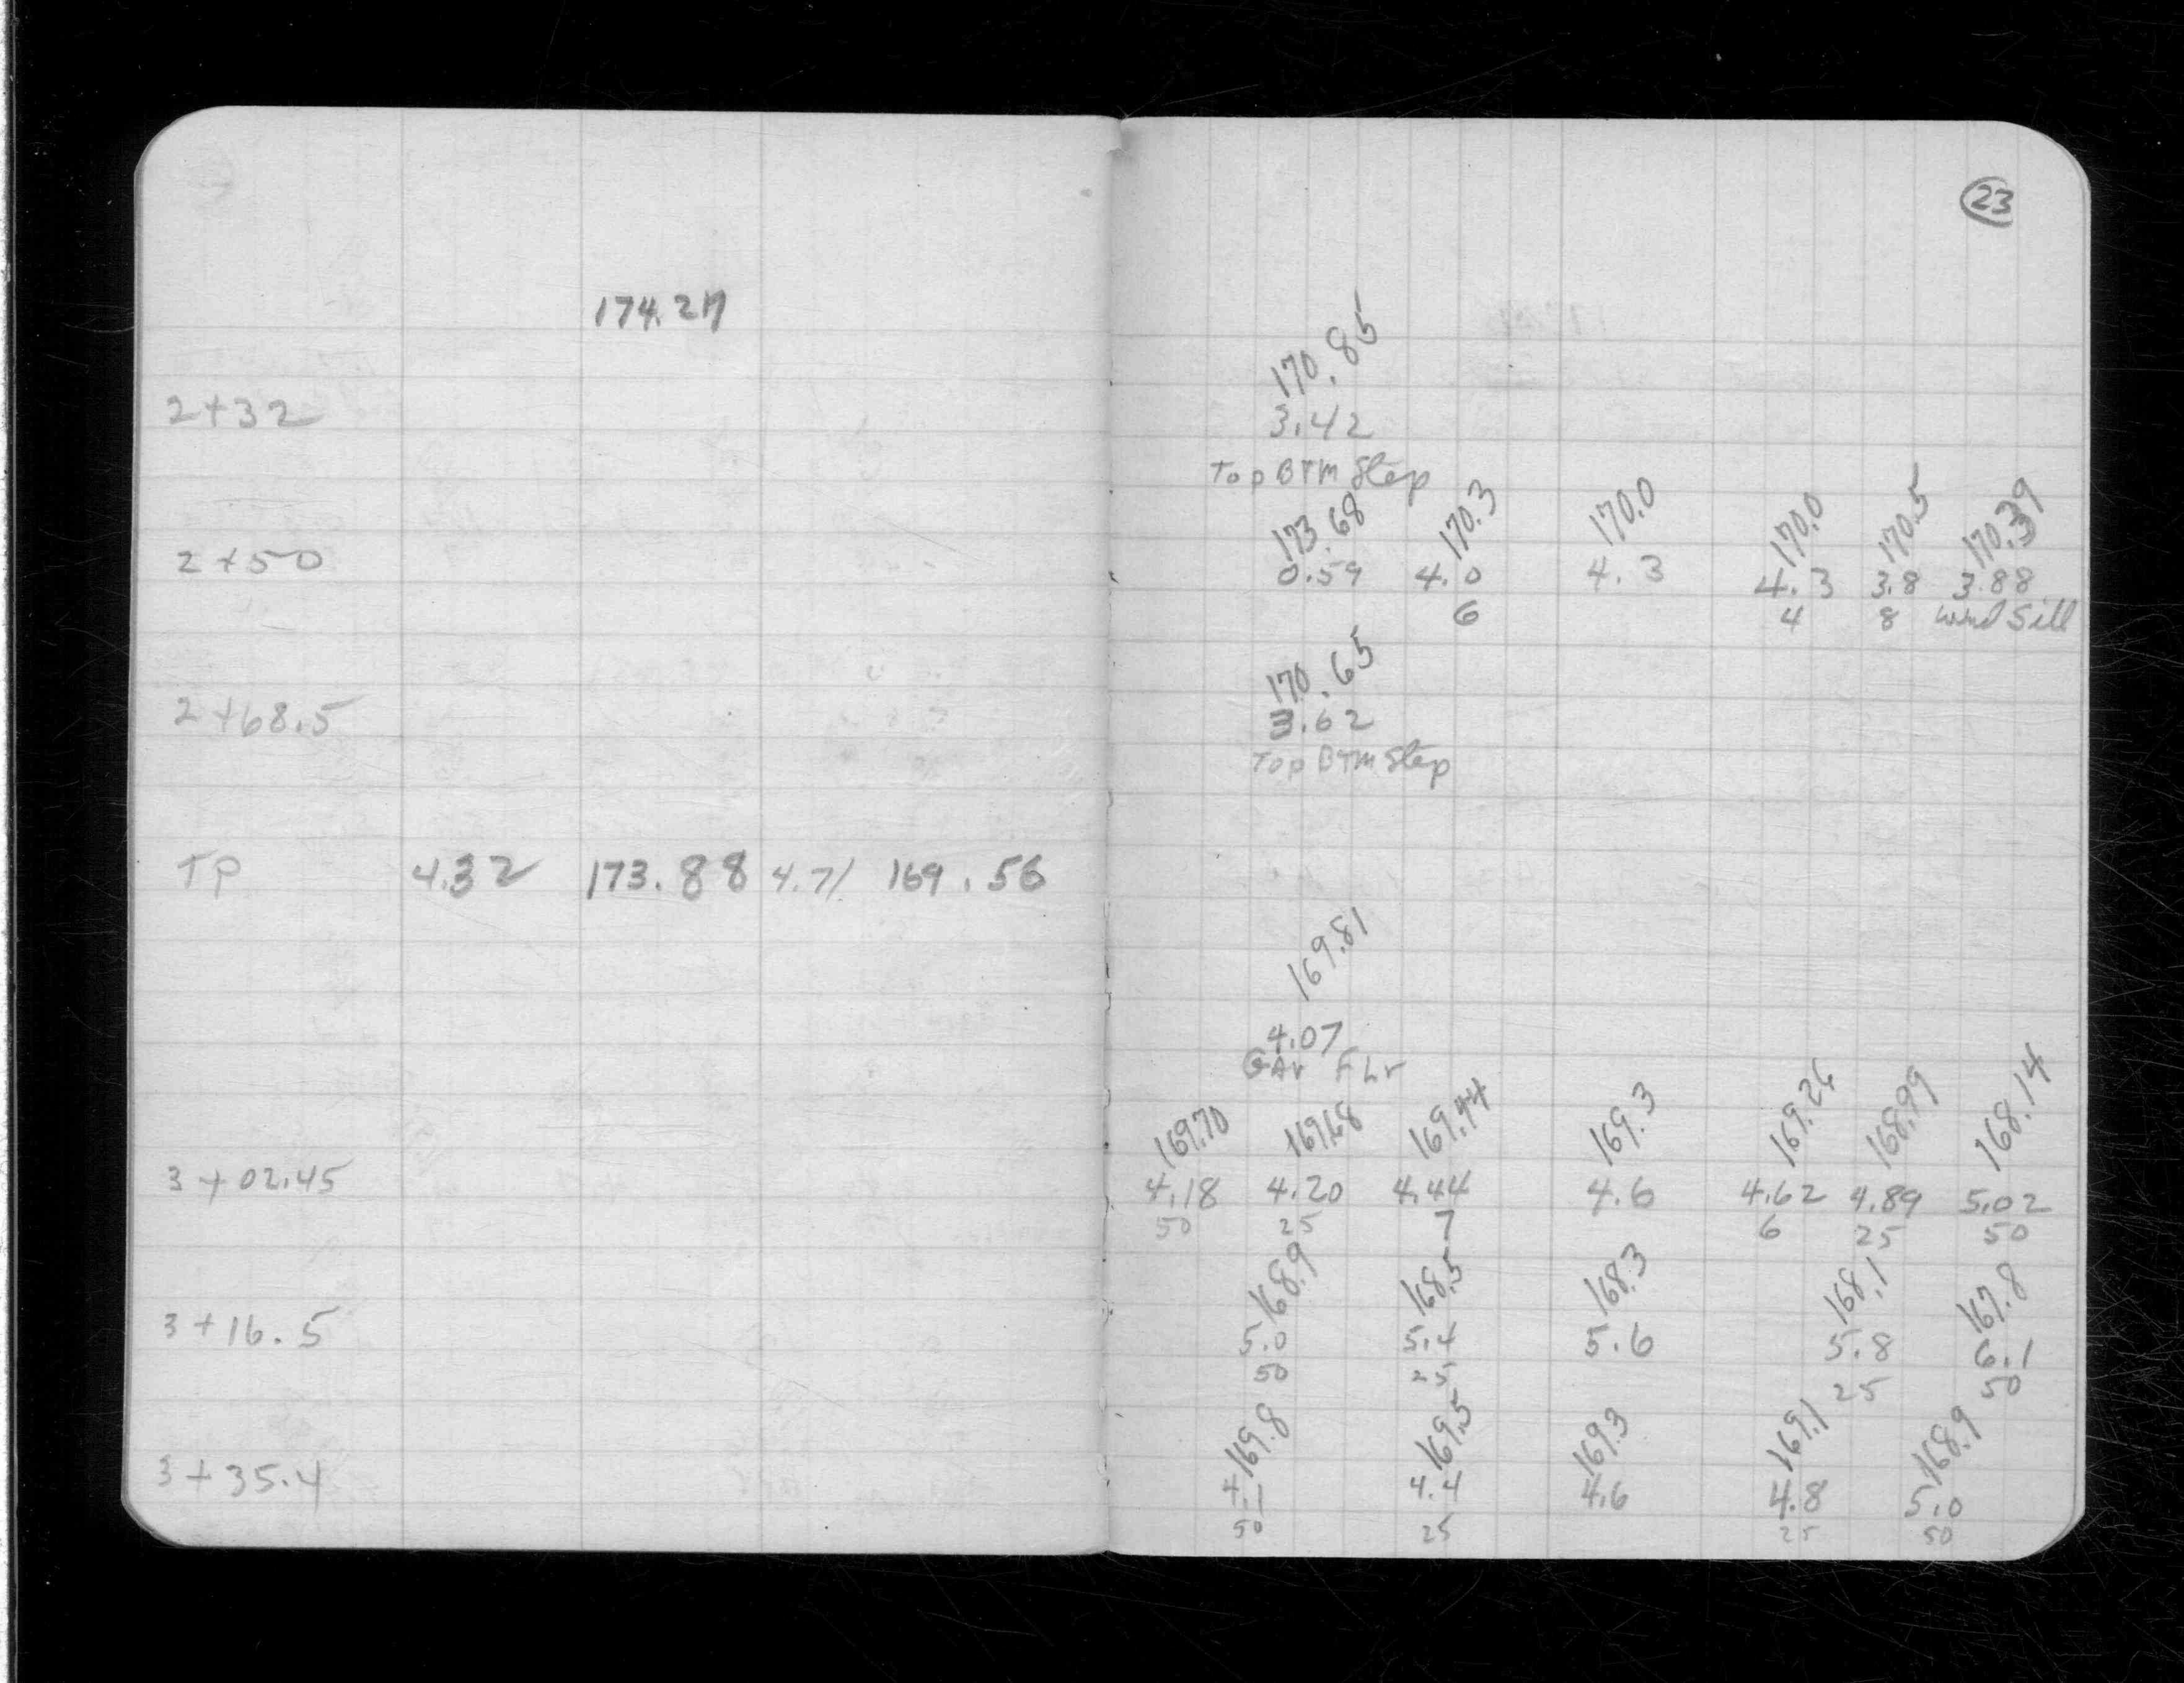 23
174.27
170.85
2+32 3.42
Top BTM Step
173.68 170.3 170.0 170.0 170.5 170.39
2+50 0.59 4.0 4.3 4.3 3.8 3.88
6 4 8 Wnd Sill
170.65
2+68.5 3.62
Top BTM Step
TP 4.32 173.88 4.71 169.56
169.81
4.07
GAr FLr
169.70 169.68 169.44 169.3 169.26 168.99 168.14
3+02.45 4.18 4.20 4.44 4.6 4.62 4.89 5.02
50 25 7 6 25 50
168.9 168.5 168.3 168.1 167.8
3+16.5 5.0 5.4 5.6 5.8 6.1
50 25 25 50
169.8 169.5 169.3 169.1 168.9
3+35.4 4.1 4.4 4.6 4.8 5.0
50 25 25 50